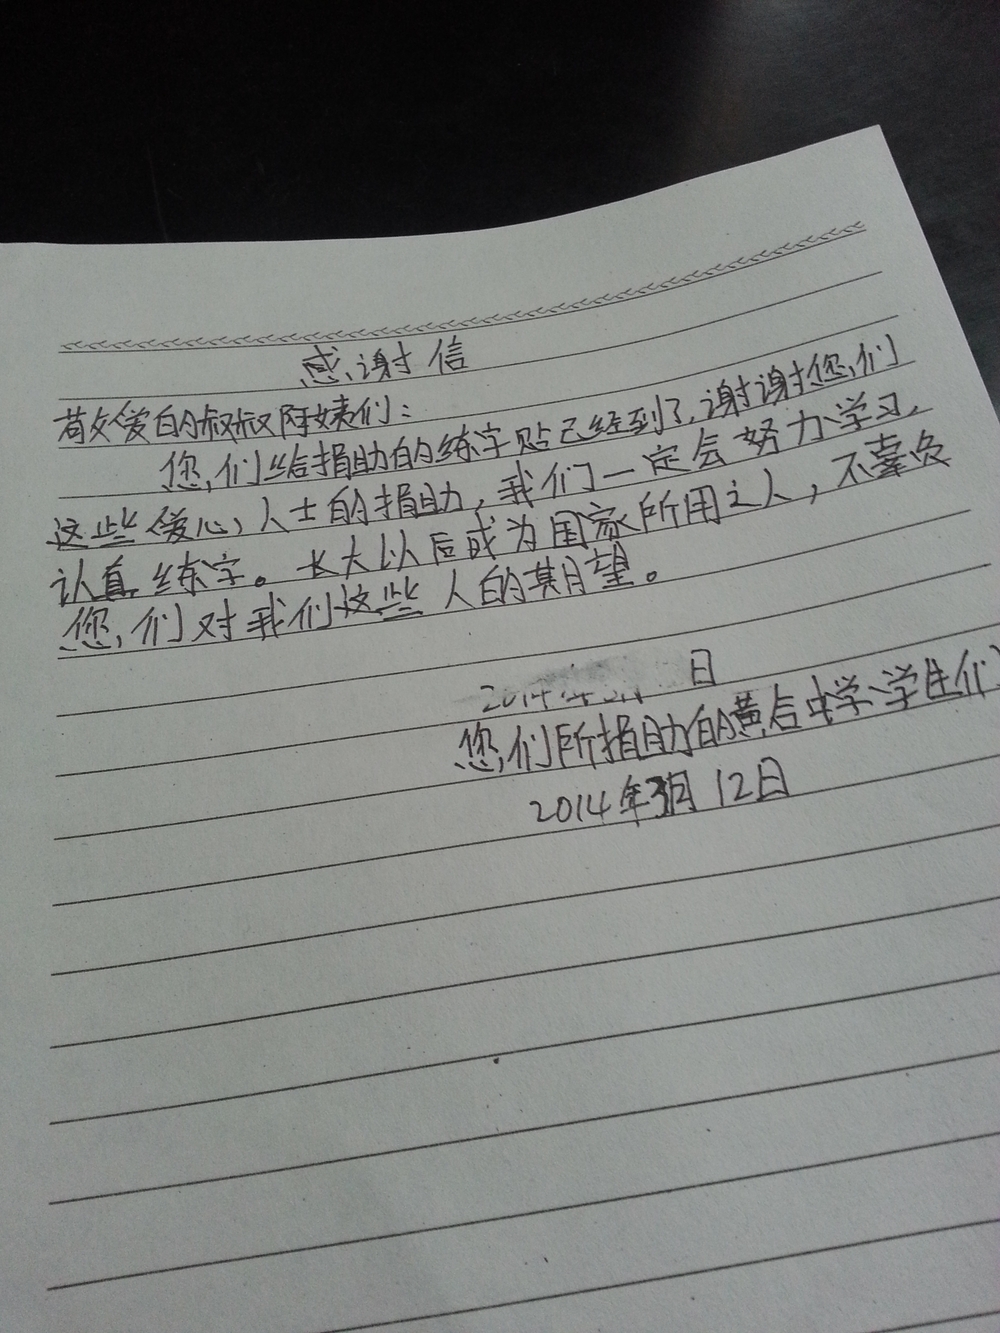 感谢信
尊敬爱的叔叔阿姨们：
您们给捐助的练字贴已经到了，谢谢您们
这些爱心人士的捐助，我们一定会努力学习，
认真练字。长大以后成为国家所用之人，不辜负
您们对我们这些人的期望。
2014年3月 日
您们所捐助的黄后中学学生们
2014年3月12日